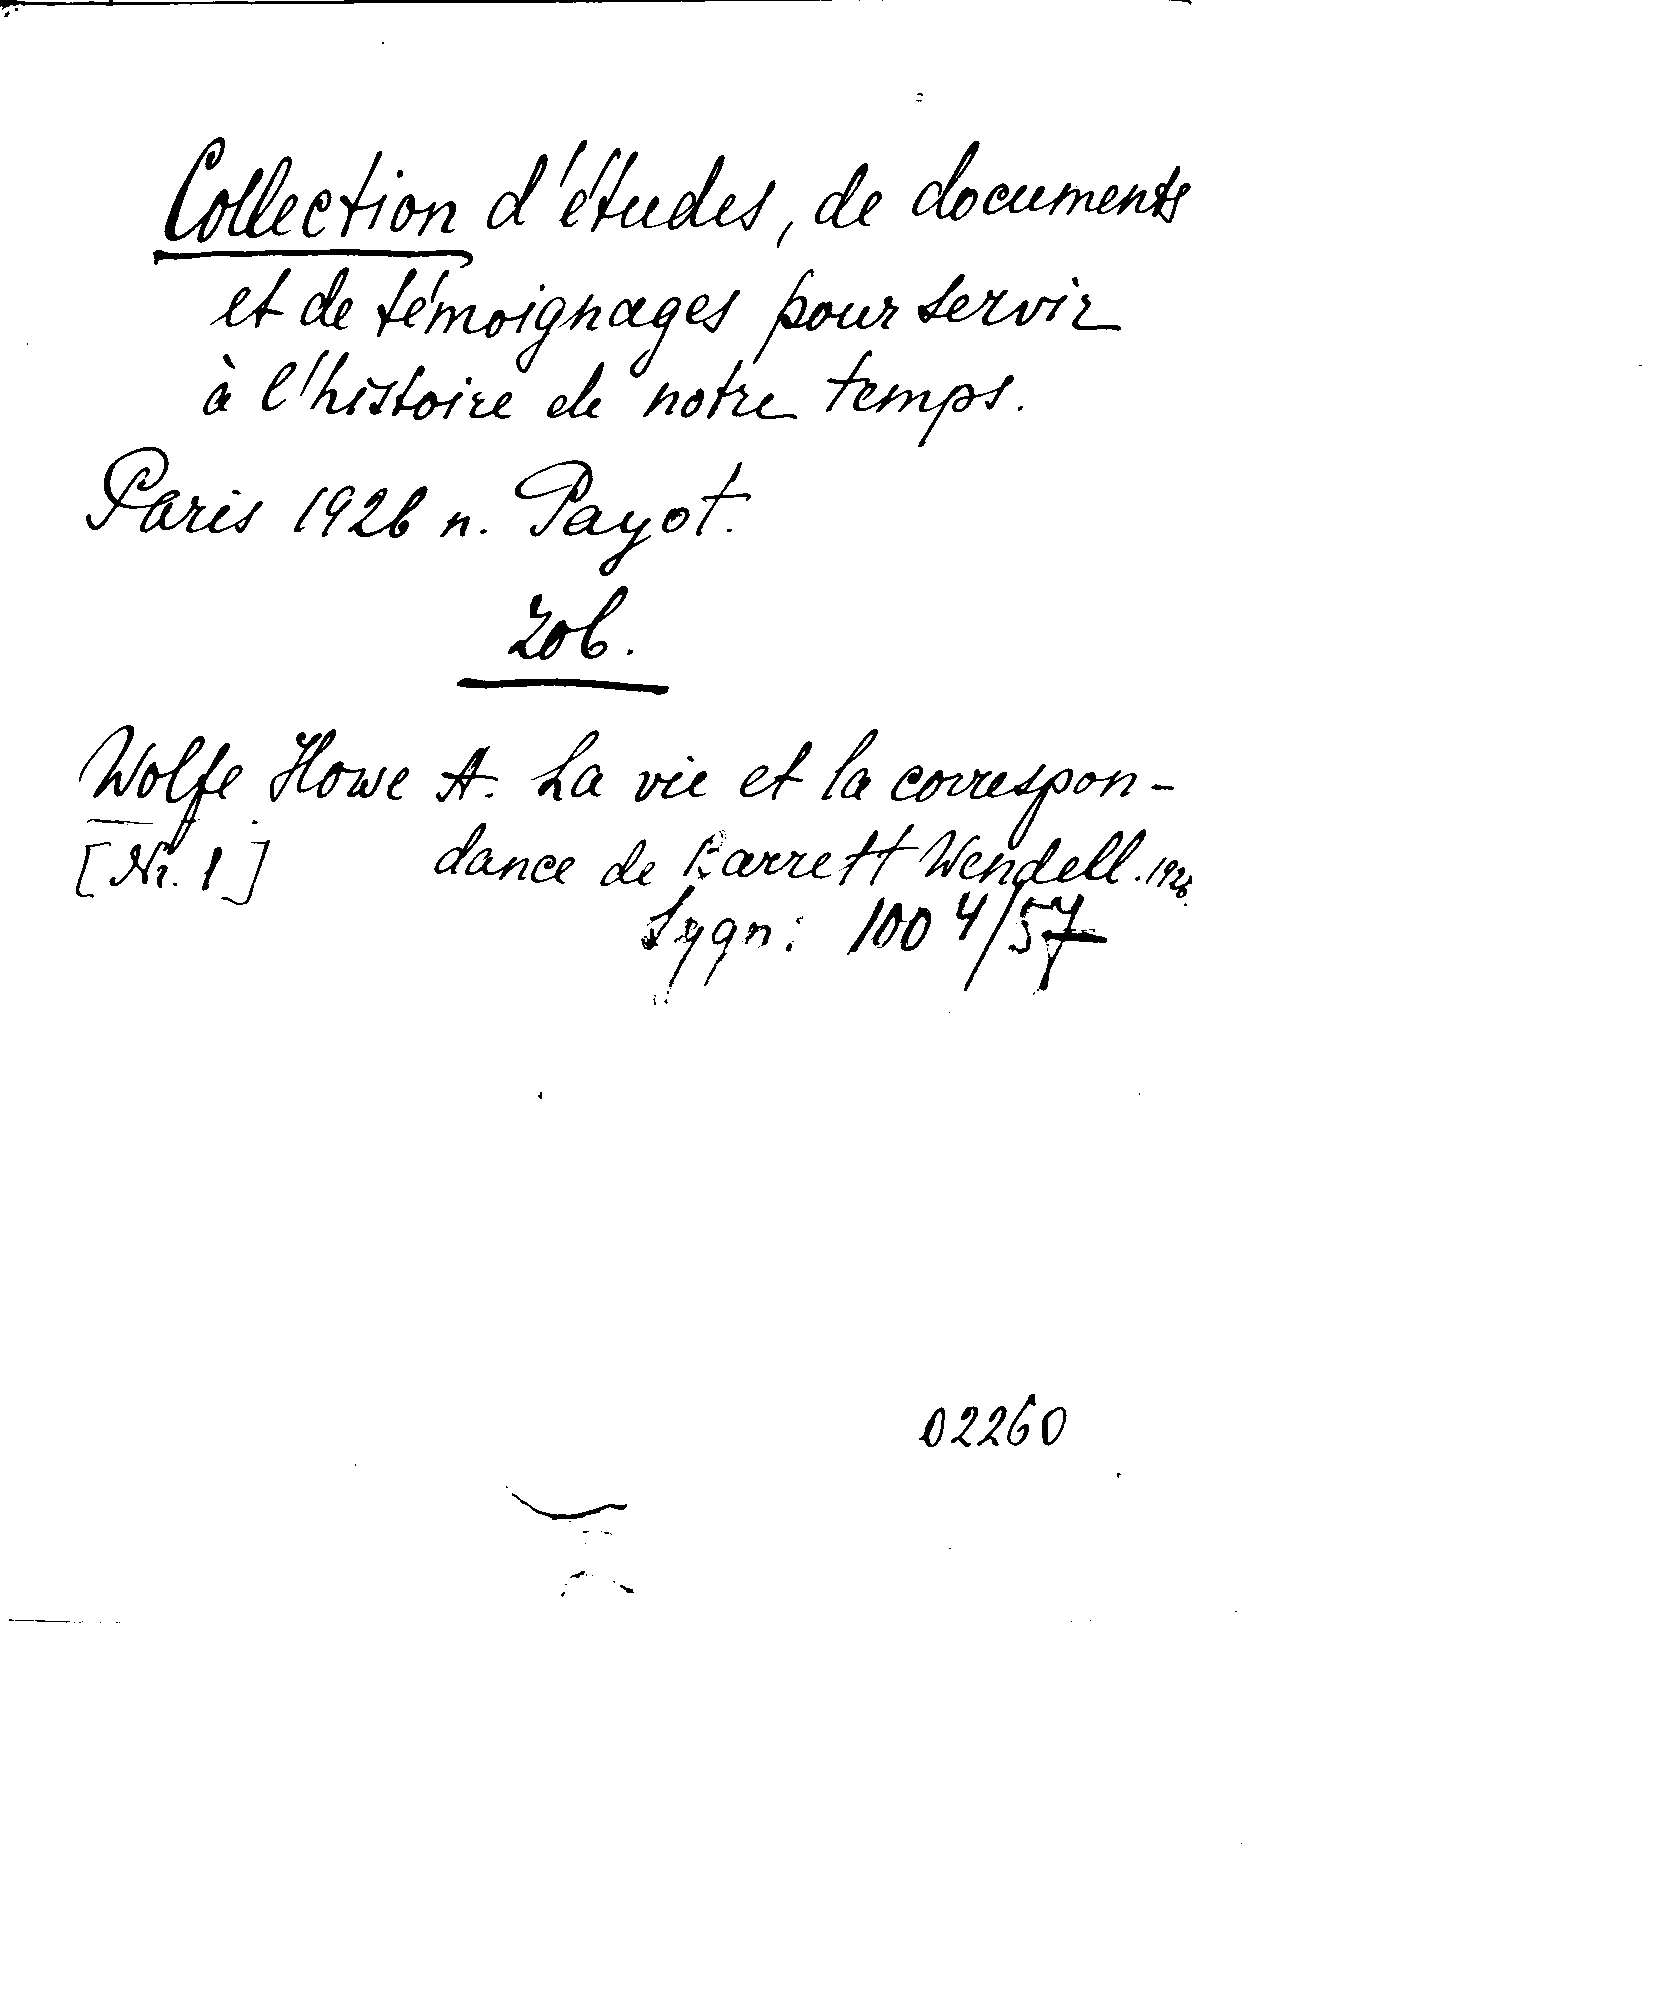 Collection d'études, de documents
et de témoignages pour servir
à l'histoire de notre temps.
Paris 1926 n. Payot.
Zob.
Wolfe Howe A. La vie et la correspon-
[Nr. 1] dance de Barrett Wendell. 1926.
Sygn: 1004/57
02260